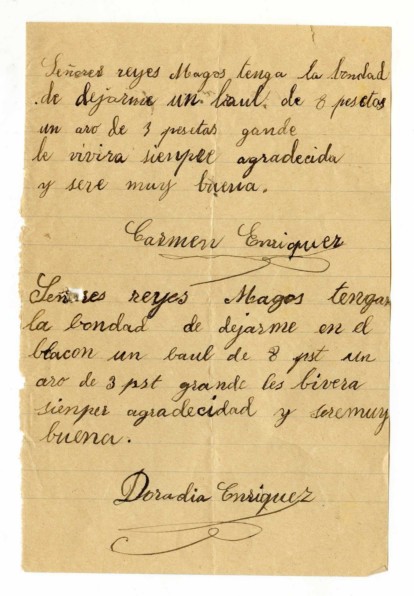 Señores reyes Magos tenga la bondad
de dejarme un baul. de 8 pesetas
un aro de 3 pesetas gande
le vivira sienper agradecida
y sere muy buena.
Carmen Enriquez
Señores reyes Magos tengan
la bondad de dejarme en el
blacon un baul de 8 pst un
aro de 3 pst grande les bivera
sienper agradecidad y sere muy
buena.
Doradia Enriquez